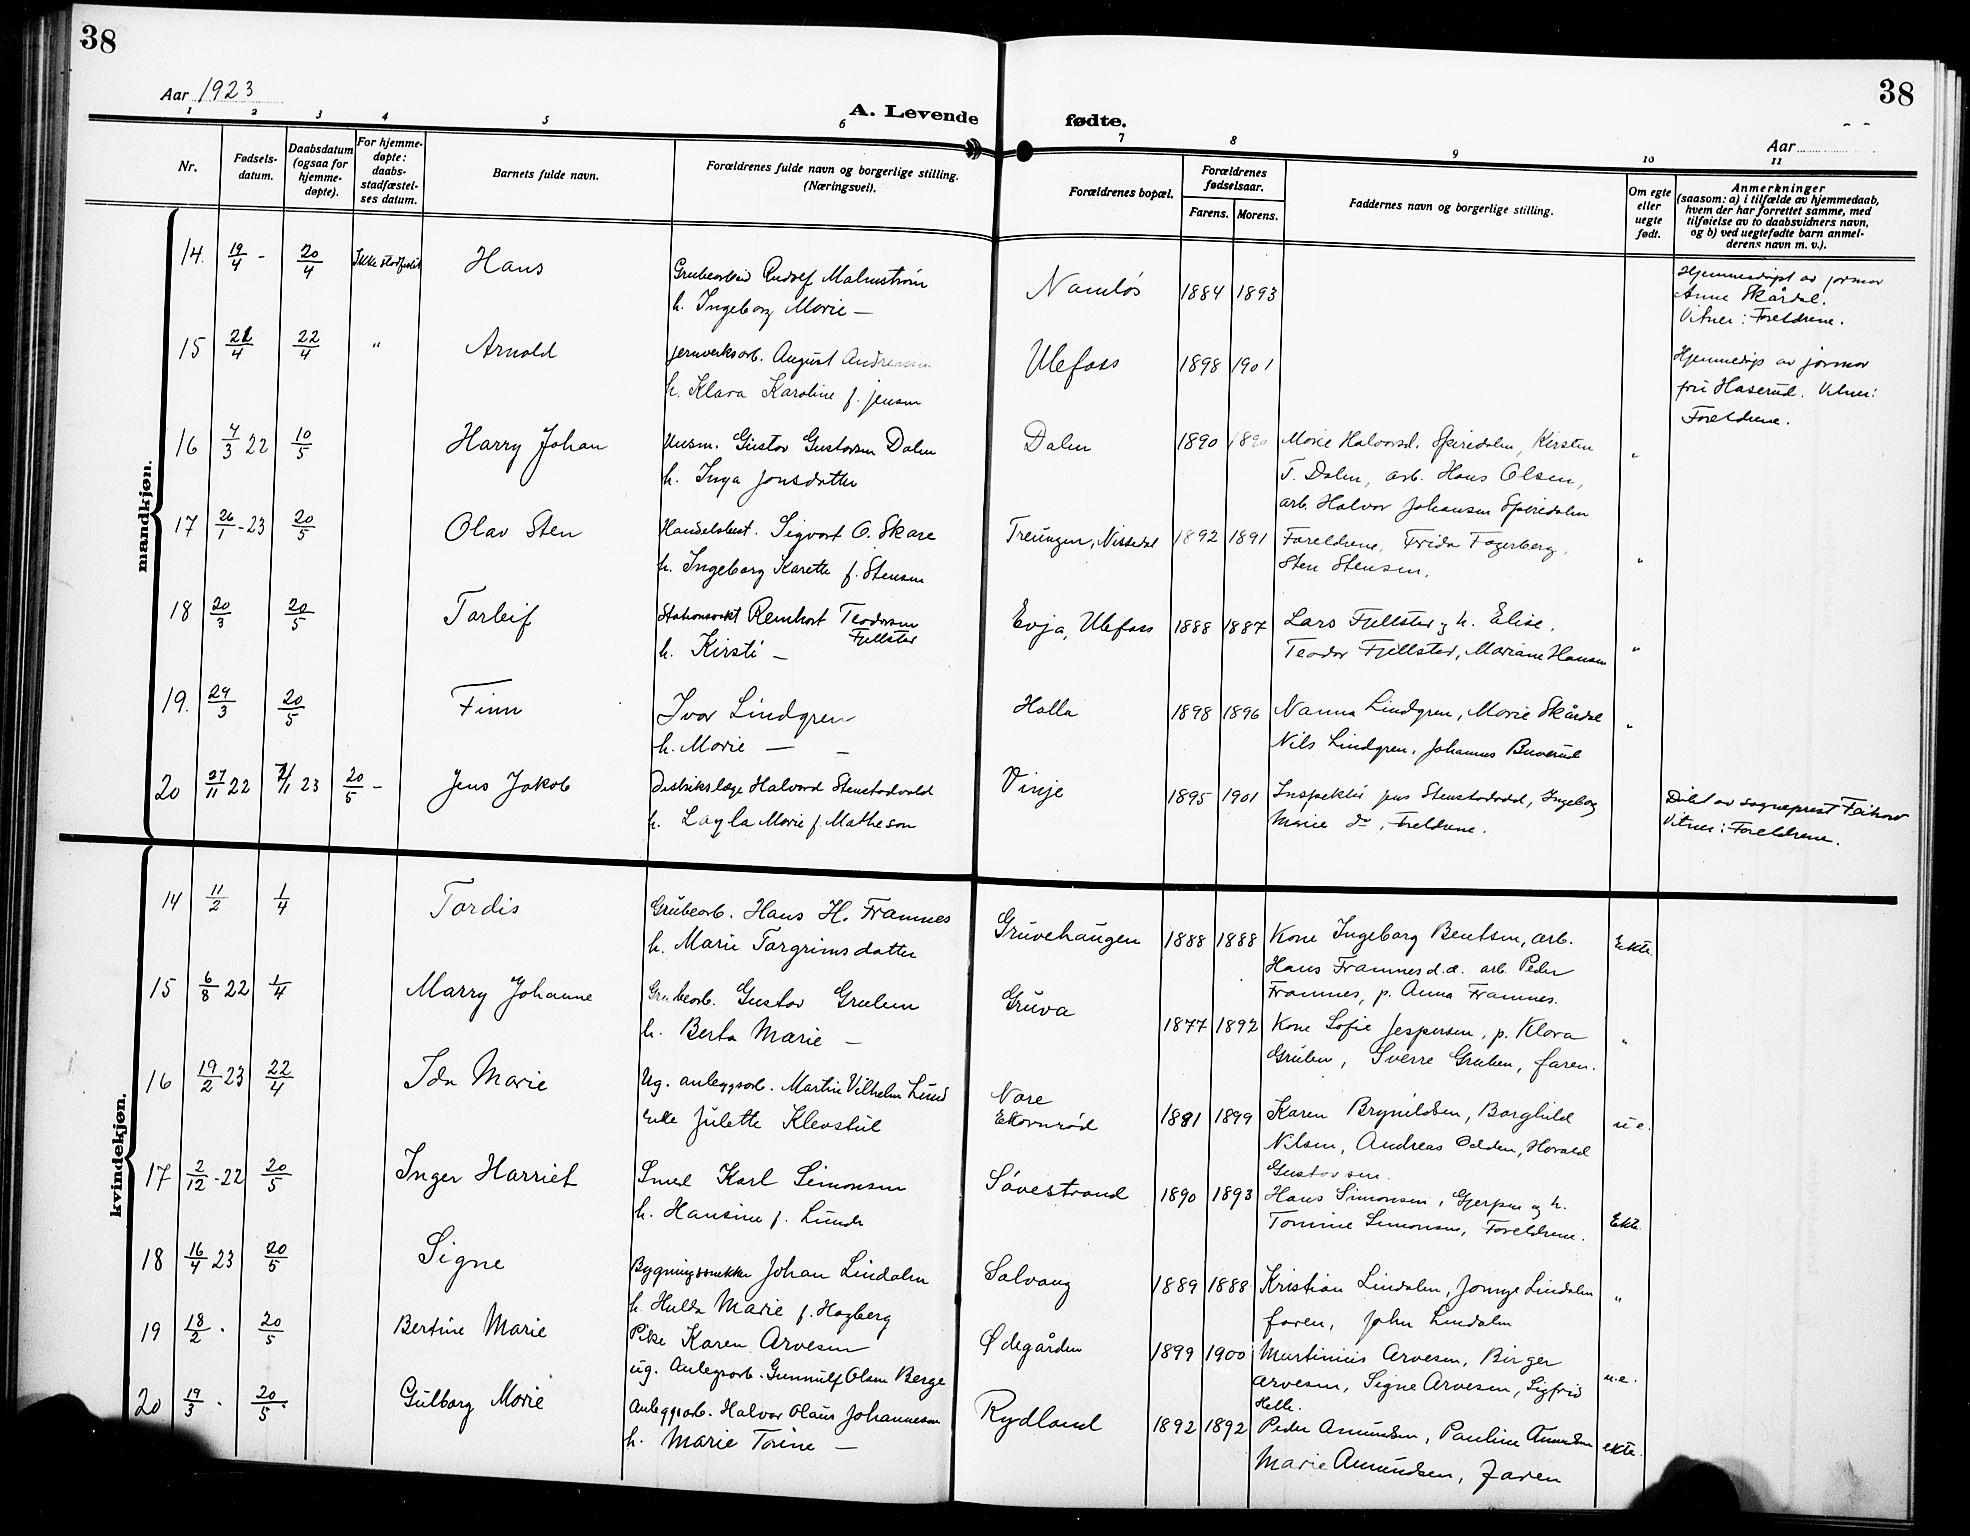 38
38
Aar 1923
A. Levende fødte.
Aar
1 2 3 4 5 6 7 8 9 10 11
Nr.
Fødsels-
datum.
Daabsdatum
(ogsaa for
hjemme-
døpte).
For hjemme-
døpte:
daabs-
stadfæstel-
ses datum.
Barnets fulde navn.
Forældrenes fulde navn og borgerlige stilling.
(Næringsvei).
Forældrenes bopæl.
Forældrenes
fødselsaar.
Farens. Morens.
Faddernes navn og borgerlige stilling.
Om egte
eller
uegte
født.
Anmerkninger
(saasom: a) i tilfælde av hjemmedaab,
hvem der har forrettet samme, med
tilføielse av to daabsvidners navn,
og b) ved uegtefødte barn anmel-
derens navn m. v.).
mandkjøn.
14. 19/4 - 20/4 Ikke stadfestet Hans
Grubearbeid Rudolf Malmstrøm
h. Ingeborg Marie —
Namløs 1884 1893
Hjemmedøpt av jormor
Anne Skårdal.
Vitner: Foreldrene.
15 21/4 22/4 " Arnold
jernverksarb. August Andreassen
h. Klara Karoline f. Jensen
Ulefoss 1898 1901
Hjemmedøp av jormor
fru Haserud. Vitner:
Foreldrene.
16 7/3 22 10/5 Harry Johan
Husm. Gustav Gustavsen Dalen
h. Inga Jonsdatter
Dalen 1890 1890
Marie Halvorsd. Speiredalen, Kirsten
T. Dalen, arb. Hans Olsen,
arb. Halvor Johansen Speiredalen
"
17 26/1 - 23 20/5 Olav Sten
Handelsbest. Sigvart O. Skare
h. Ingeborg Karette f. Stensen
Treungen, Nissedal 1892 1891
Foreldrene, Frida Fagerberg,
Sten Stensen.
"
18 20/3 20/5 Torleif
Reinhart Teodorsen
Fjellstad
h. Kirsti —
Evja, Ulefoss 1888 1887
Lars Fjellstad og h. Elise.
Teodor Fjellstad, Mariane Hansen
"
19. 29/3 20/5 Finn
Ivar Lindgren
h. Marie — —
Holla 1898 1896
Nanna Lindgren, Marie Skårdal
Nils Lindgren, Johannes Buverud
"
20 27/11 22 7/1 23 20/5 - Jens Jakob
Distriktslæge Halvard Stenstadvold
h. Layla Marie f. Matheson
Vinje 1895 1901
Inspektør Jens Stenstadvold, Ingeborg
Marie do, Foreldrene.
Døbt av sogneprest
Vitner: Foreldrene.
kvindekjøn.
14 11/2 1/4 Tordis
Grubearb. Hans H. Framnes
h. Marie Torgrimsdatter
Gruvehaugen 1888 1888
Kone Ingeborg Bentsen, arb.
Hans Framnes d.æ. arb. Peder
Framnes, p. Anna Framnes.
Ekte.
15 6/8 22 1/4 Marry Johanne
Grubearb. Gustav Gruben
h. Berta Marie —
Gruva 1877 1892
Kone Sofie Jespersen, p. Klara
Gruben, Sverre Gruben, faren.
"
16 19/2 23 22/4 Ida Marie
Ug. anleggsarb. Martin Vilhelm Lund
Enke Julette Klevstul
Nore
Ekornrød
1881 1899
Karen Brynildsen, Borghild
Nilsen, Andreas Odden, Harald
Gustavsen.
u.e.
17 2/12 - 22 20/5 Inger Harriet
Smed Karl Simonsen
h. Hansine f. Lunde
Søvestrand 1890 1893
Hans Simonsen, Gjerpen og h.
Tomine Simonsen, Foreldrene.
Ekte.
18 16/4 23 20/5 Signe
Bygningssnekker Johan Lindalen
h. Hulda Marie f. Hagberg
Solvang 1889 1888
Kristian Lindalen, Lindalen
faren, John Lindalen
"
19 18/2 . 20/5 Bertine Marie
Pike Karen Arvesen
ug. Anlegsarb. Gunnulf Olsen Berge
Ødegården 1899 1900
Martinius Arvesen, Birger
Arvesen, Signe Arvesen, Sigfrid
Helle.
u.e.
20 19/3 . 20/5 Gulborg Marie
Anleggsarb. Halvor Olaus Johannesen
h. Marie Torine —
Rydland 1892 1892
Peder Amundsen, Pauline Amundsen
Marie Amundsen, Faren
ekte.